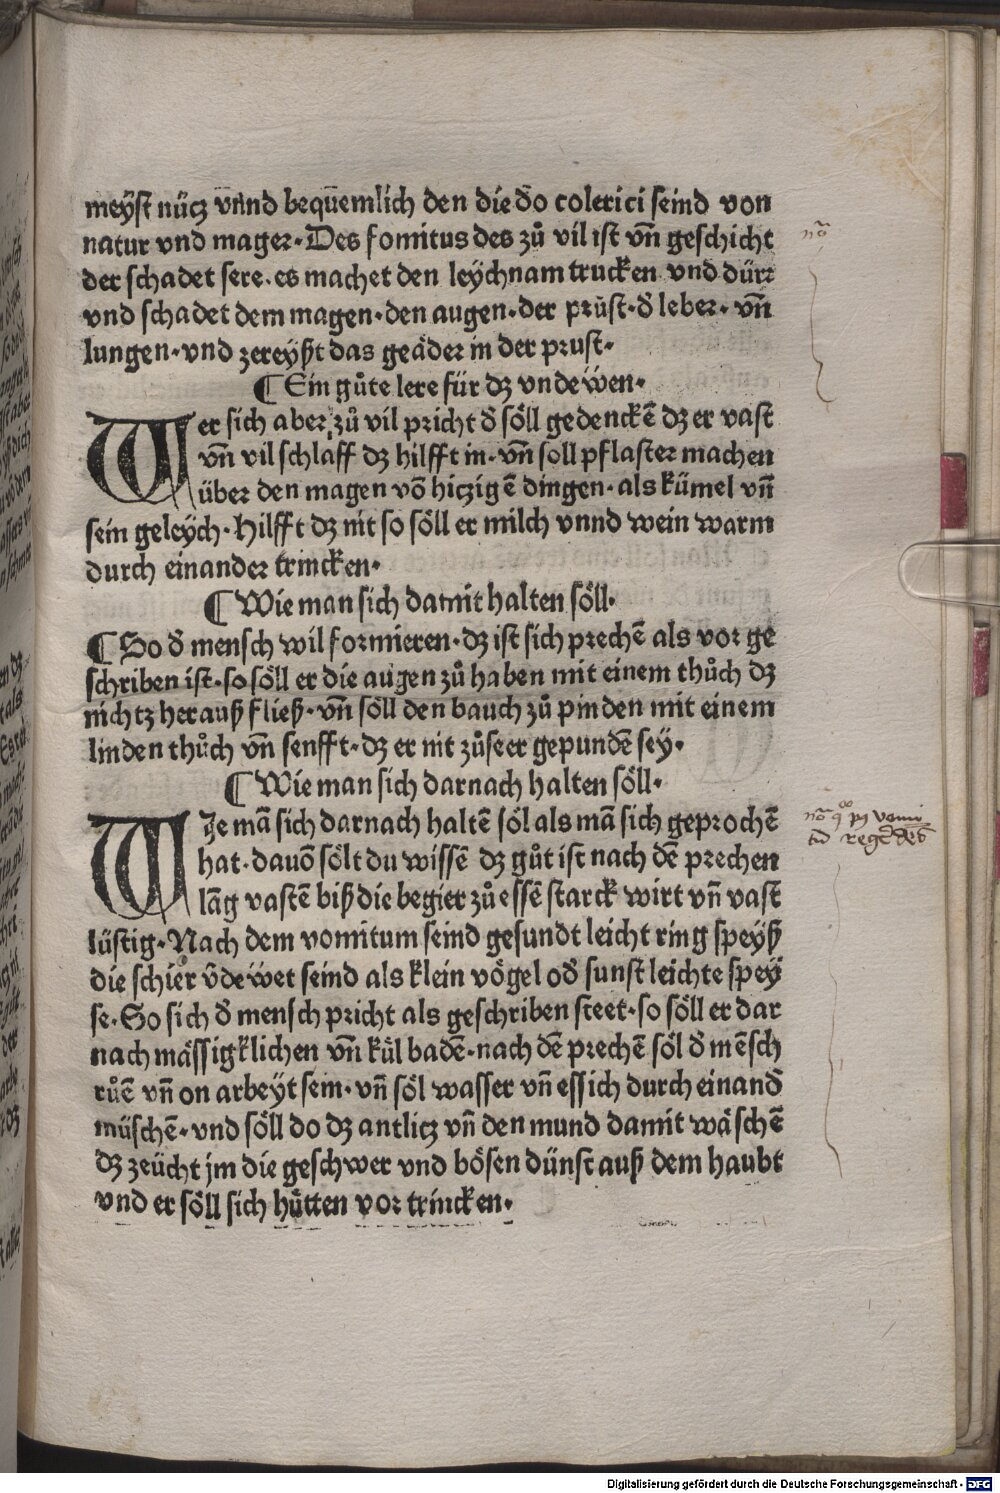 meÿst nücz vnnd bequemlich den die do colerici seind von
natur vnd mager. Des fomitus des zů vil ist vn̄ geschicht
der schadet sere. es machet den leÿchnam trucken vnd dürr
vnd schadet dem magen. den augen. der průst. d̄ leber. vn̄
lungen. vnd zereÿßt das geäder in der prust.
¶ Ein gůte lere für dz vndewen.
Wer sich aber zů vil pricht d̄ söll gedenckē dz er vast
vn̄ vil schlaff dz hilfft in. vn̄ soll pflaster machen
über den magen vō hiczigē dingen. als kümel vn̄
sein geleÿch. Hilfft dz nit so söll er milch vnnd wein warm
durch einander trincken.
¶ Wie man sich damit halten söll.
¶ So d̄ mensch wil formieren. dz ist sich prechē als vor ge
schriben ist. so söll er die augen zů haben mit einem thůch dz
nichtz herauß fließ. vn̄ söll den bauch zů pinden mit einem
linden thůch vn̄ senfft. dz er nit zůseer gepundē sey.
¶ Wie man sich darnach halten söll.
WJe mā sich darnach haltē söl als mā sich geprochē
hat. dauō sölt du wissē dz gůt ist nach dē prechen
lāg vastē biß die begier zů essē starck wirt vn̄ vast
lüstig. Nach dem vomitum seind gesundt leicht ring speÿß
die schier v̄dewet seind als klein vögel od̄ sunst leichte speÿ
se. So sich d̄ mensch pricht als geschriben steet. so söll er dar
nach mässigklichen vn̄ kůl badē. nach dē prechē söl d̄ mēsch
růē vn̄ on arbeyt sein. vn̄ söl wasser vn̄ essich durch einand̄
müschē. vnd söll do dz antlicz vn̄ den mund damit wäschē
dz zeücht jm die geschwer vnd bösen dünst auß dem haubt
vnd er söll sich hütten vor trincken.
Digitalisierung gefördert durch die Deutsche Forschungsgemeinschaft - DFG